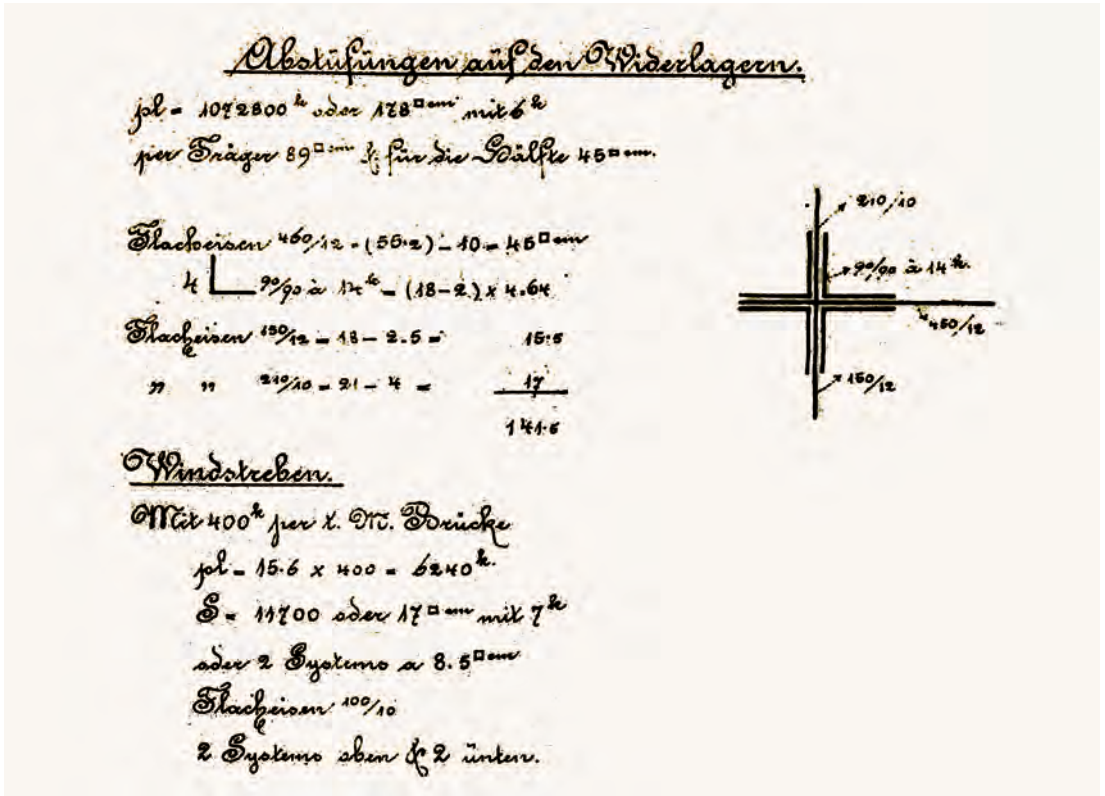 Abstufungen auf den Widerlagern.
pl = 1072800 k oder 178 □cm mit 6 k
per Träger 89 □cm & für die Hälfte 45 □cm.
Flacheisen 460/12 = (55.2) – 10 = 45 □cm
4 90/90 à 14 k = (18–2) x 4.64
Flacheisen 150/12 = 18 – 2.5 = 15.5
" " 210/10 = 21 – 4 = 17
141.5
210/10
90/90 à 14 k.
460/12
150/12
Windstreben.
Mit 400 k per l. M. Brücke
pl = 15.6 x 400 = 6240 k.
S = 11700 oder 17 □cm mit 7 k
oder 2 Systeme a 8.5 □cm
Flacheisen 100/10
2 Systeme oben & 2 unten.